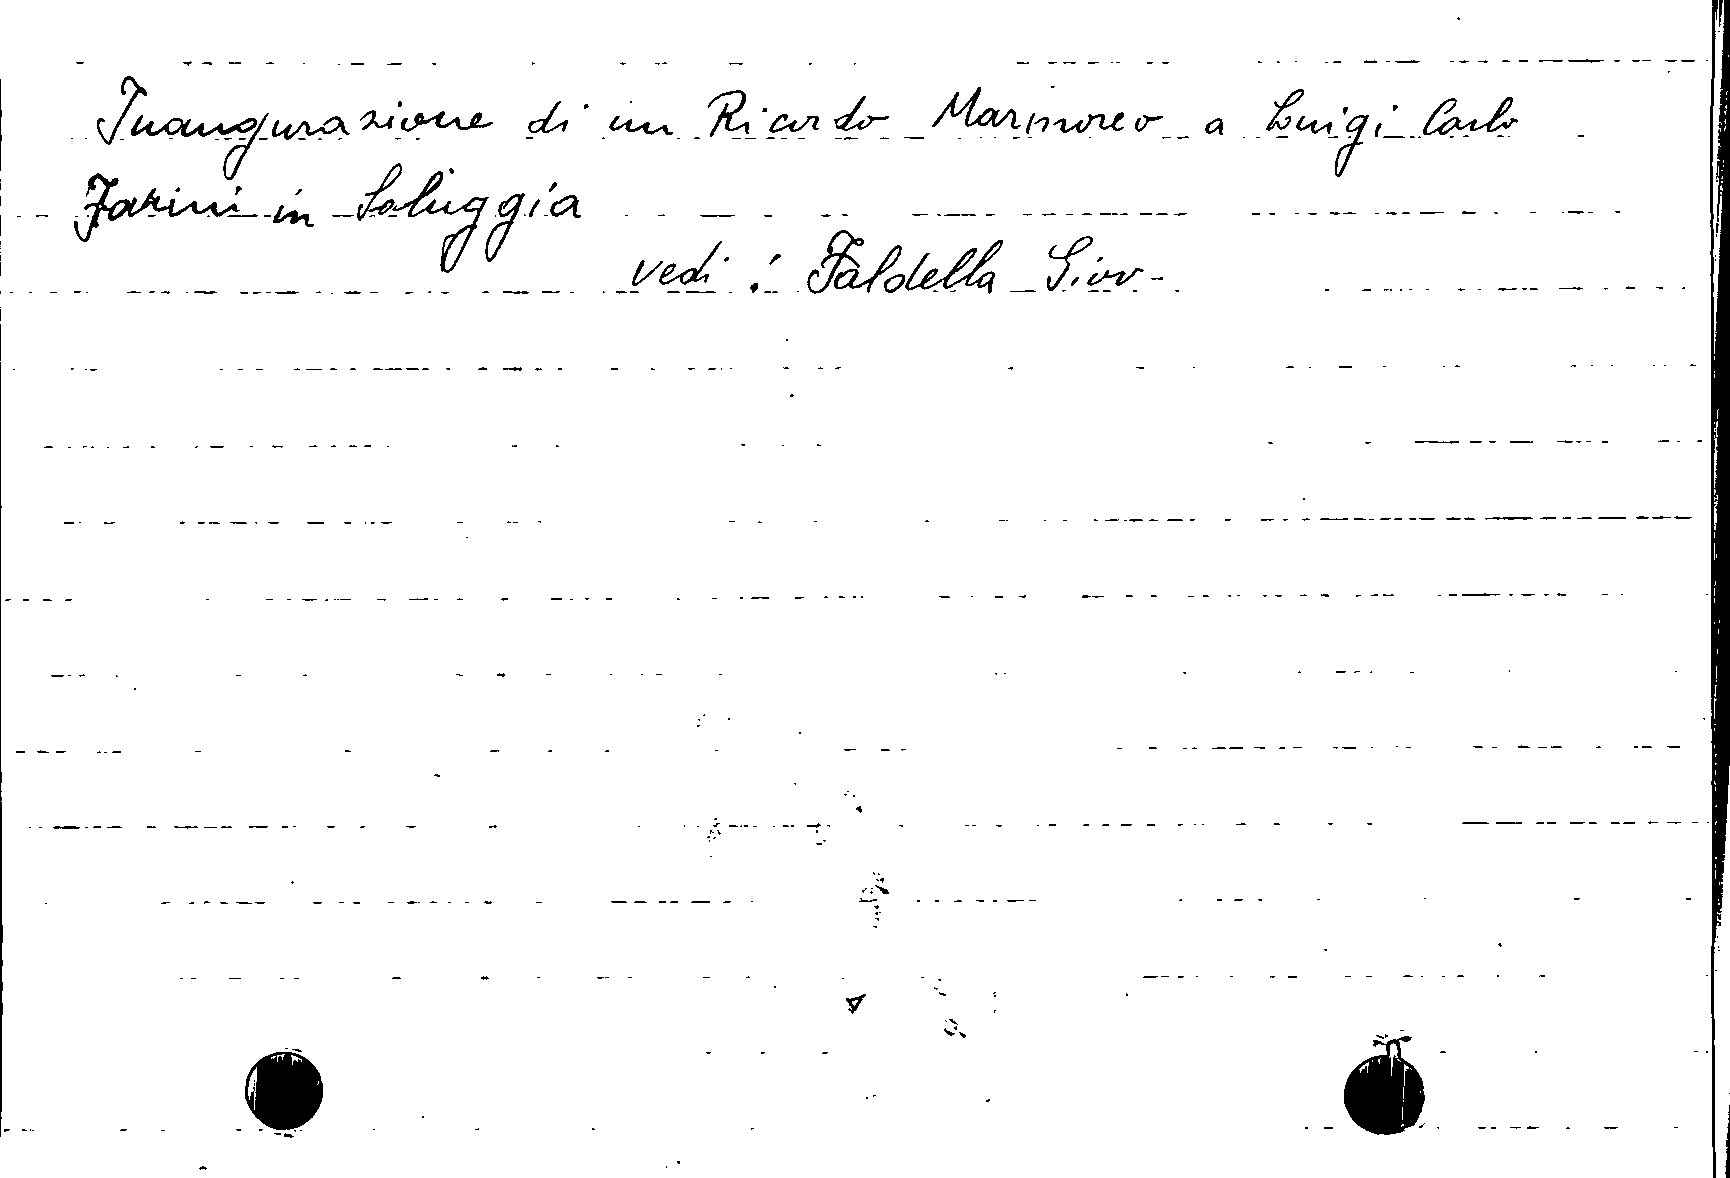 Inaugurazione di un Ricordo Marmoreo a Luigi Carlo
Farini in Saluggia
vedi : Faldella Giov-